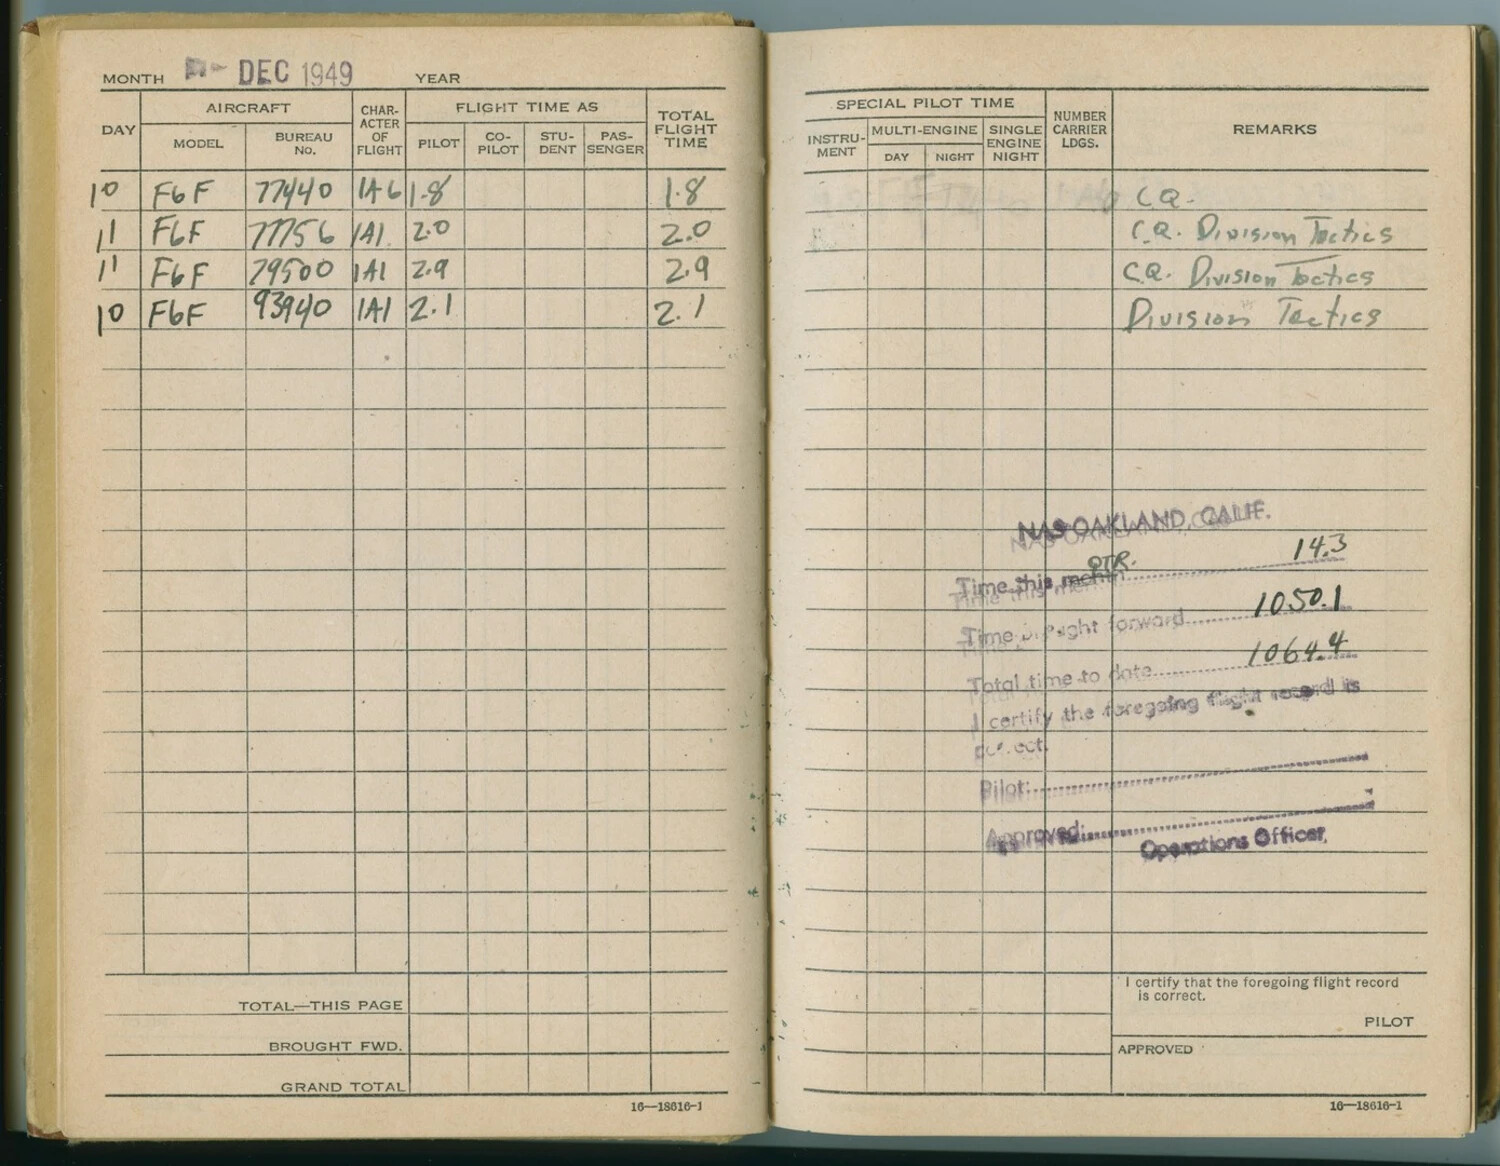 MONTH DEC 1949 YEAR
DAY AIRCRAFT CHAR-ACTER OF FLIGHT FLIGHT TIME AS TOTAL FLIGHT TIME
MODEL BUREAU No. PILOT CO-PILOT STU-DENT PAS-SENGER
10 F6F 77440 1A6 1.8 1.8
11 F6F 77756 1A1 2.0 2.0
11 F6F 79500 1A1 2.9 2.9
10 F6F 93940 1A1 2.1 2.1
TOTAL—THIS PAGE
BROUGHT FWD.
GRAND TOTAL
16—18616-1
SPECIAL PILOT TIME NUMBER CARRIER LDGS. REMARKS
INSTRU-MENT MULTI-ENGINE SINGLE ENGINE NIGHT
DAY NIGHT
C.Q.
C.Q. Division Tactics
C.Q. Division Tactics
Division Tactics
NAS OAKLAND, CALIF.
QTR.
Time this month 14.3
Time brought forward 1050.1
Total time to date 1064.4
I certify the foregoing flight record is
correct.
Pilot:
Approved:
Operations Officer
I certify that the foregoing flight record
is correct.
PILOT
APPROVED
16—18616-1